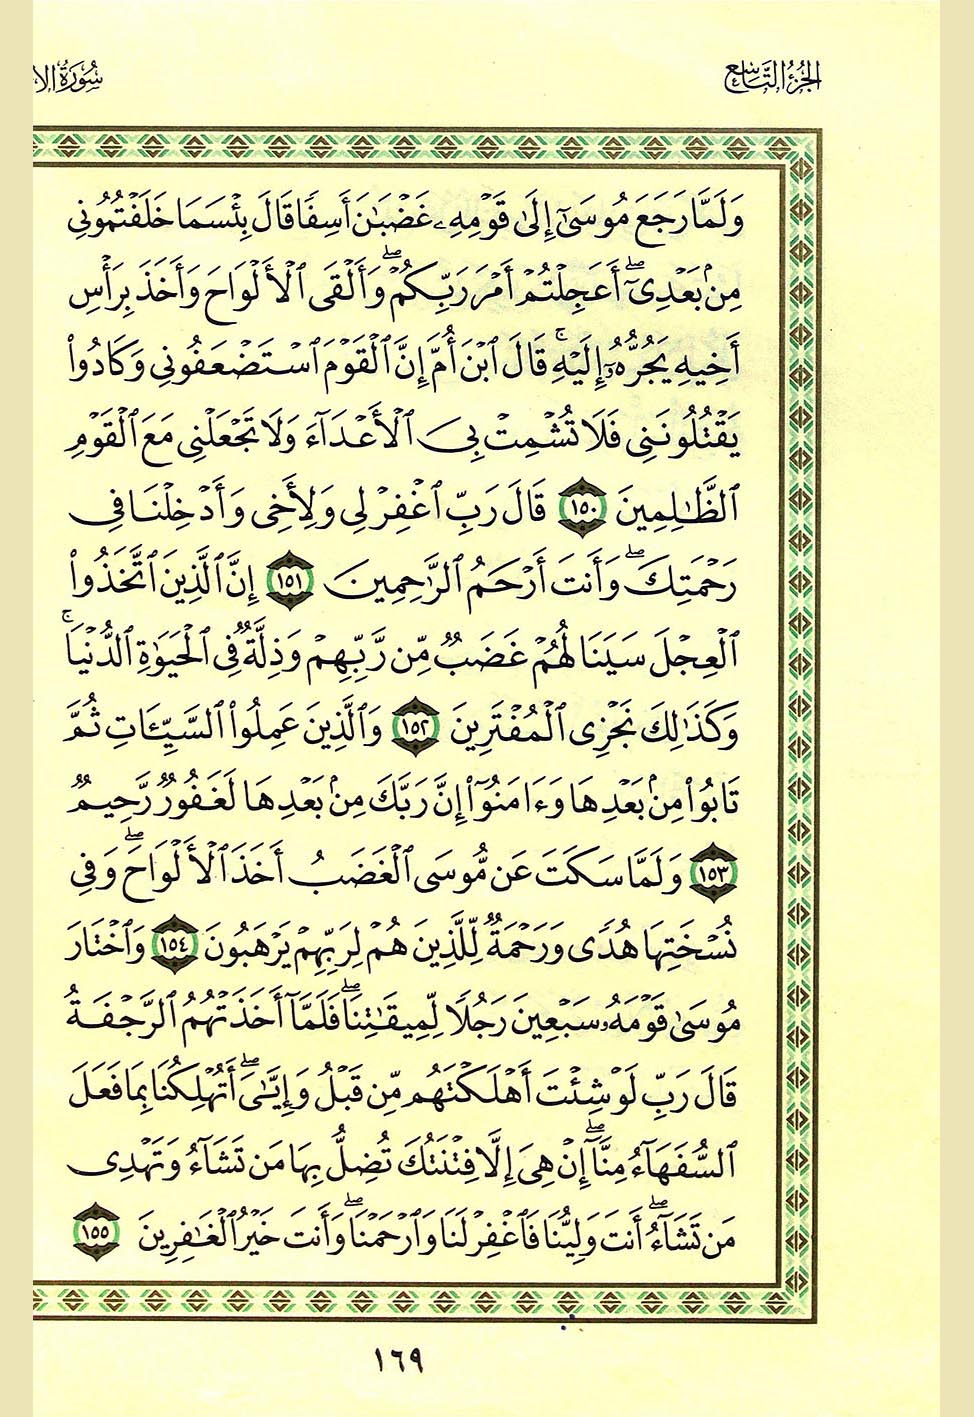 الجزء التاسع
سورة الا
وَلَمَّا رَجَعَ مُوسَىٰٓ إِلَىٰ قَوْمِهِۦ غَضْبَٰنَ أَسِفًا قَالَ بِئْسَمَا خَلَفْتُمُونِى
مِنۢ بَعْدِىٓ ۖ أَعَجِلْتُمْ أَمْرَ رَبِّكُمْ ۖ وَأَلْقَى ٱلْأَلْوَاحَ وَأَخَذَ بِرَأْسِ
أَخِيهِ يَجُرُّهُۥٓ إِلَيْهِ ۚ قَالَ ٱبْنَ أُمَّ إِنَّ ٱلْقَوْمَ ٱسْتَضْعَفُونِى وَكَادُوا۟
يَقْتُلُونَنِى فَلَا تُشْمِتْ بِىَ ٱلْأَعْدَآءَ وَلَا تَجْعَلْنِى مَعَ ٱلْقَوْمِ
ٱلظَّٰلِمِينَ ١٥٠ قَالَ رَبِّ ٱغْفِرْ لِى وَلِأَخِى وَأَدْخِلْنَا فِى
رَحْمَتِكَ ۖ وَأَنتَ أَرْحَمُ ٱلرَّٰحِمِينَ ١٥١ إِنَّ ٱلَّذِينَ ٱتَّخَذُوا۟
ٱلْعِجْلَ سَيَنَالُهُمْ غَضَبٌ مِّن رَّبِّهِمْ وَذِلَّةٌ فِى ٱلْحَيَوٰةِ ٱلدُّنْيَا ۚ
وَكَذَٰلِكَ نَجْزِى ٱلْمُفْتَرِينَ ١٥٢ وَٱلَّذِينَ عَمِلُوا۟ ٱلسَّيِّـَٔاتِ ثُمَّ
تَابُوا۟ مِنۢ بَعْدِهَا وَءَامَنُوٓا۟ إِنَّ رَبَّكَ مِنۢ بَعْدِهَا لَغَفُورٌ رَّحِيمٌ
١٥٣ وَلَمَّا سَكَتَ عَن مُّوسَى ٱلْغَضَبُ أَخَذَ ٱلْأَلْوَاحَ ۖ وَفِى
نُسْخَتِهَا هُدًى وَرَحْمَةٌ لِّلَّذِينَ هُمْ لِرَبِّهِمْ يَرْهَبُونَ ١٥٤ وَٱخْتَارَ
مُوسَىٰ قَوْمَهُۥ سَبْعِينَ رَجُلًا لِّمِيقَٰتِنَا ۖ فَلَمَّآ أَخَذَتْهُمُ ٱلرَّجْفَةُ
قَالَ رَبِّ لَوْ شِئْتَ أَهْلَكْتَهُم مِّن قَبْلُ وَإِيَّٰىَ ۖ أَتُهْلِكُنَا بِمَا فَعَلَ
ٱلسُّفَهَآءُ مِنَّآ ۖ إِنْ هِىَ إِلَّا فِتْنَتُكَ تُضِلُّ بِهَا مَن تَشَآءُ وَتَهْدِى
مَن تَشَآءُ ۖ أَنتَ وَلِيُّنَا فَٱغْفِرْ لَنَا وَٱرْحَمْنَا ۖ وَأَنتَ خَيْرُ ٱلْغَٰفِرِينَ ١٥٥
١٦٩